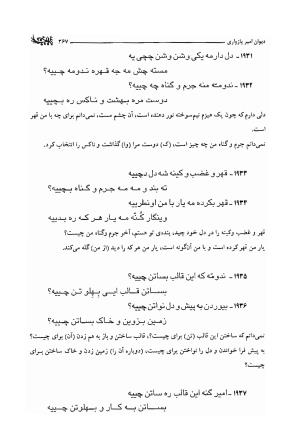 دیوان امیر پازواری
۲۶۷
۱۹۳۱ - دل دارمه یکی وشن وشن چچی یه
مسته چش مه جه قهره ندومه چییه؟
۱۹۳۲ - ندومته منه جرم و گناه چه چییه؟
دوست مره بهشت و ناکس ره چییه؟
دلی دارم که چون یک هیزم نیم‌سوخته نور دهنده، است، آن چشم مست، نمی‌دانم برای چه با من قهر
است.
نمی‌دانم جرم و گناه من چه چیز است، (ک) دوست مرا (وا) گذاشت و ناکس را انتخاب کرد.
۱۹۳۳ - قهر و غضب و کینه شه دل دچییه
ته بند و مه مه جرم و گناه بچییه؟
۱۹۳۴ - قهر بکرده مه یار با من اونطرییه
وینگار کُتّه مه یار هر که ره بدییه
قهر و غضب، وکینه را در دل خود چید، بنده‌ی تو هستم، آخر جرم وگناه من چیست؟
یار من قهر کرده است و با من آن‌گونه است، یار من هر که را دید (از من) گله می‌کند.
۱۹۳۵ - ندومه که این قالب بساتن چییه؟
بساتن قالب ایی پهلو تن چییه؟
۱۹۳۶ - بیوردن به پیش و دل نواتن چییه؟
زمین بزوین و خاک بساتن چییه؟
نمی‌دانم که ساختن این قالب (تن) برای چیست؟، قالب ساختن و باز به هم زدن (آن) برای چیست؟
به پیش فرا خواندن و دل را نواختن برای چیست، (دوباره آن را) زمین زدن و خاک ساختن برای
چیست؟
۱۹۳۷ - امیر گنه این قالب ره ساتن چییه
بساتن به کار و بپهلوتن چییه